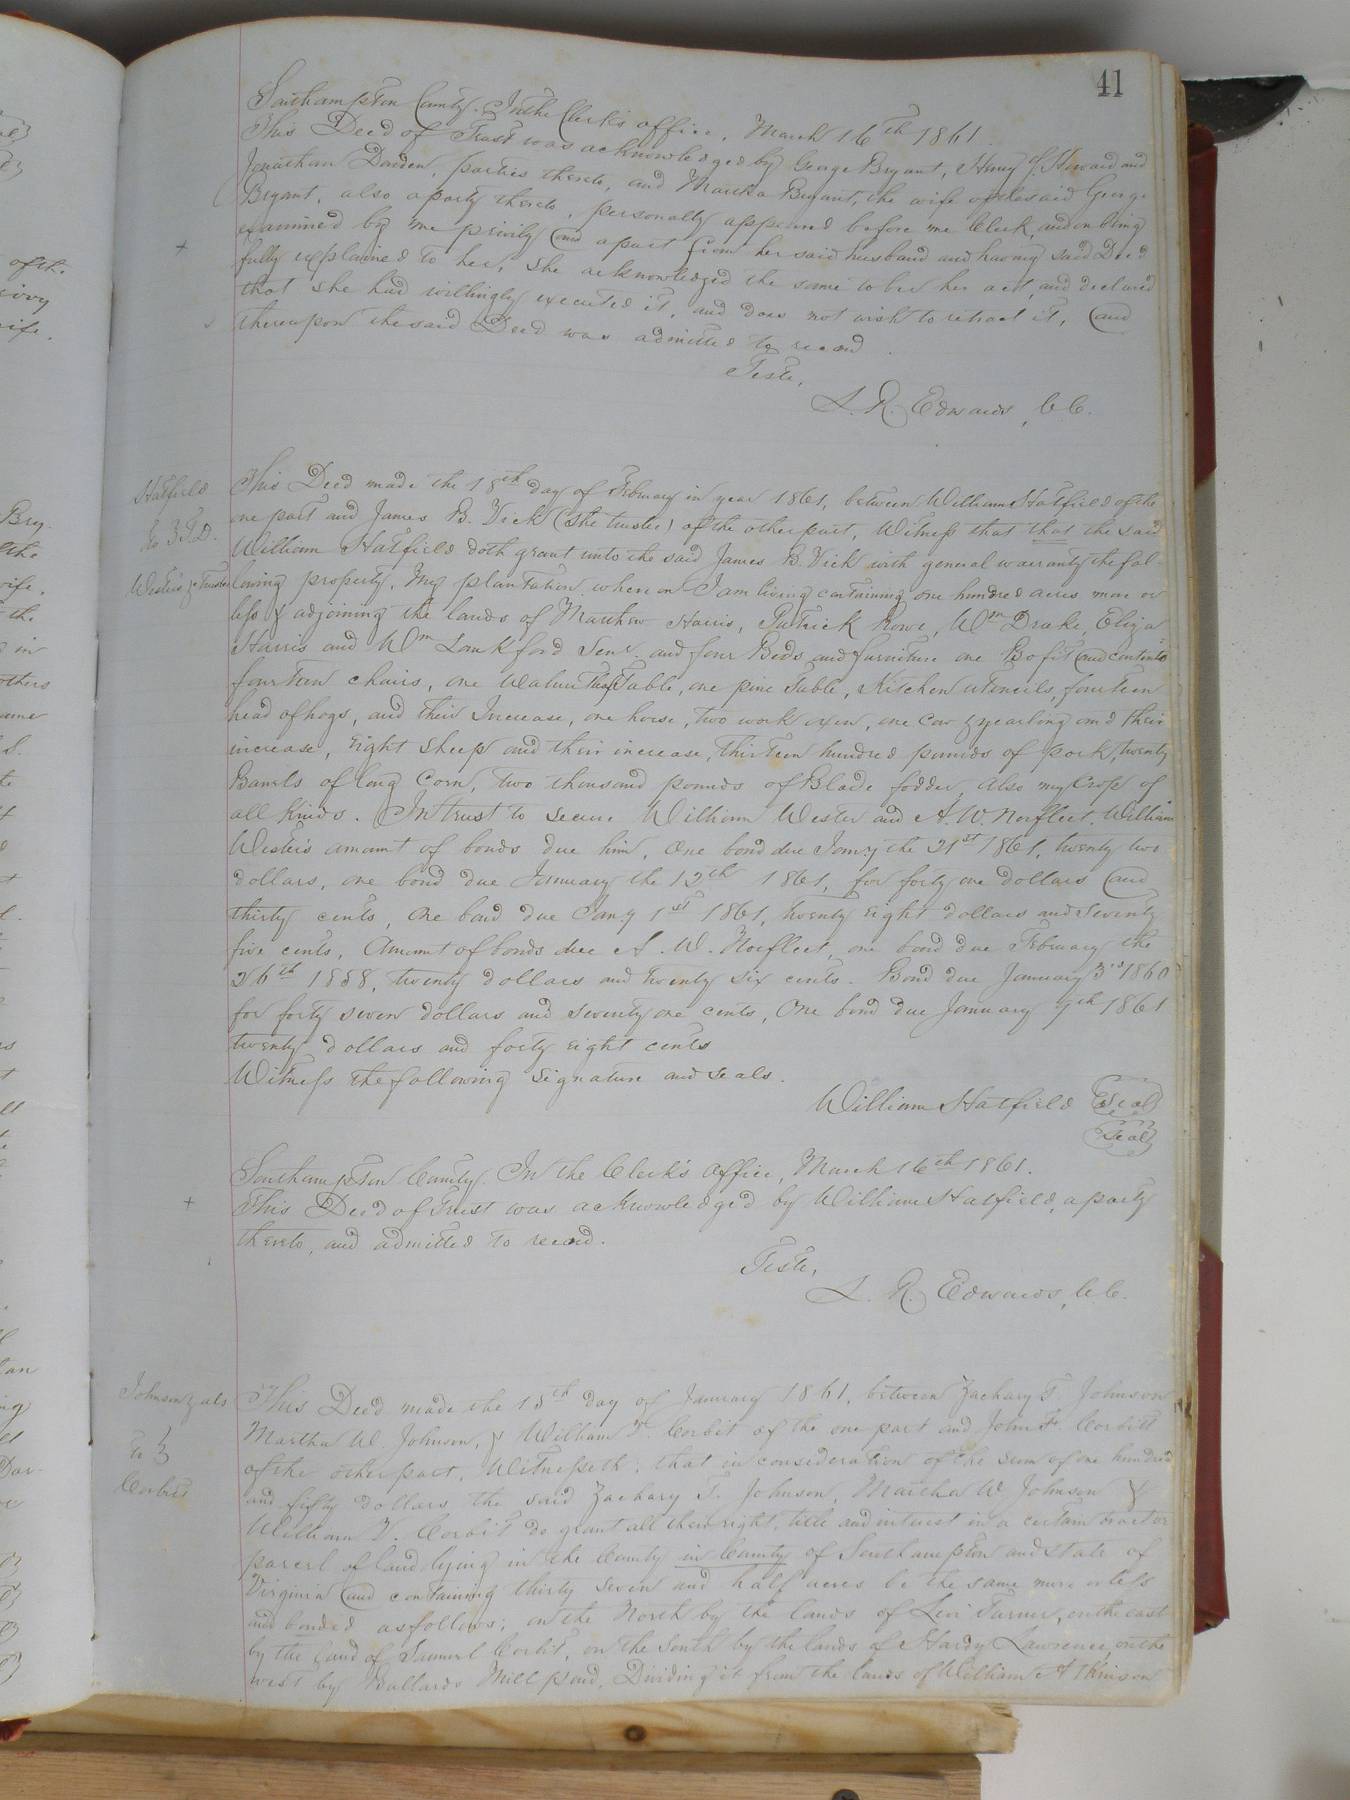 41
Southampton County. In the Clerk's office, March 16th 1861.
This Deed of Trust was acknowledged by George Bryant, Henry J. Howard and
Jonathan Darden, parties thereto, and Martha Bryant, the wife of the said George
Bryant, also a party thereto, personally appeared before me Clerk, and on being
examined by me privily and apart from her said husband and having said Deed
fully explained to her, she acknowledged the same to be her act, and declared
that she had willingly executed it, and does not wish to retract it, and
thereupon the said Deed was admitted to record.
Teste,
L. R. Edwards, C.C.
Hatfield
to } T.D.
Wester's & Trustee
This Deed made the 18th day of February in year 1861, between William Hatfield of the
one part and James B. Vick (the trustee) of the other part, Witness that that the said
William Hatfield doth grant unto the said James B. Vick with general warranty the fol-
lowing property. My plantation where on I am living containing one hundred acres more or
less & adjoining the lands of Matthew Harris, Patrick Rowe, Wm Drake, Eliza
Harris and Wm Lankford Senr. and four Beds and furniture one Bofit and contents
fourteen chairs, one walnut Table, one pine Table, Kitchen utencils, fourteen
head of hogs, and their Increase, one horse, two work oxen, one cow & yearling and their
increase, Eight sheep and their increase, thirteen hundred pounds of pork, twenty
Barrels of long Corn, two thousand pounds of Blade fodder, also my Crop of
all kinds. In trust to secure William Wester and A. W. Norfleet. William
Wester's amount of bonds due him, One bond due Jany the 21st 1861, twenty two
dollars, one bond due January the 12th 1861, for forty one dollars and
thirty cents, One bond due Jany 1st 1861, twenty eight dollars and seventy
five cents, Amount of bonds due A. W. Norfleet, one bond due February the
26th 1858, twenty dollars and twenty six cents. Bond due January 3rd 1860
for forty seven dollars and seventy one cents, One bond due January 9th 1861
twenty dollars and forty eight cents
Witness the following signature and seals.
William Hatfield (Seal)
(Seal)
Southampton County. In the Clerk's Office, March 16th 1861.
This Deed of Trust was acknowledged by William Hatfield, a party
thereto, and admitted to record.
Teste,
L. R. Edwards, C.C.
Johnson & als
to }
Corbit
This Deed made the 15th day of January 1861, between Zachary T. Johnson
Martha W. Johnson, & William V. Corbit of the one part and John F. Corbitt
of the other part, Witnesseth: that in consideration of the sum of one hundred
and fifty dollars the said Zachary T. Johnson, Martha W. Johnson &
William V. Corbit do grant all their right, title and interest in a certain tract or
parcel of land lying in the County in County of Southampton and state of
Virginia and containing thirty seven and half acres be the same more or less
and bonded as follows; on the North by the lands of Levi Turner, on the east
by the land of Samuel Corbit, on the South by the lands of Hardy Lawrence, on the
west by Ballards Mill pond, Dividing it from the lands of William Atkinson